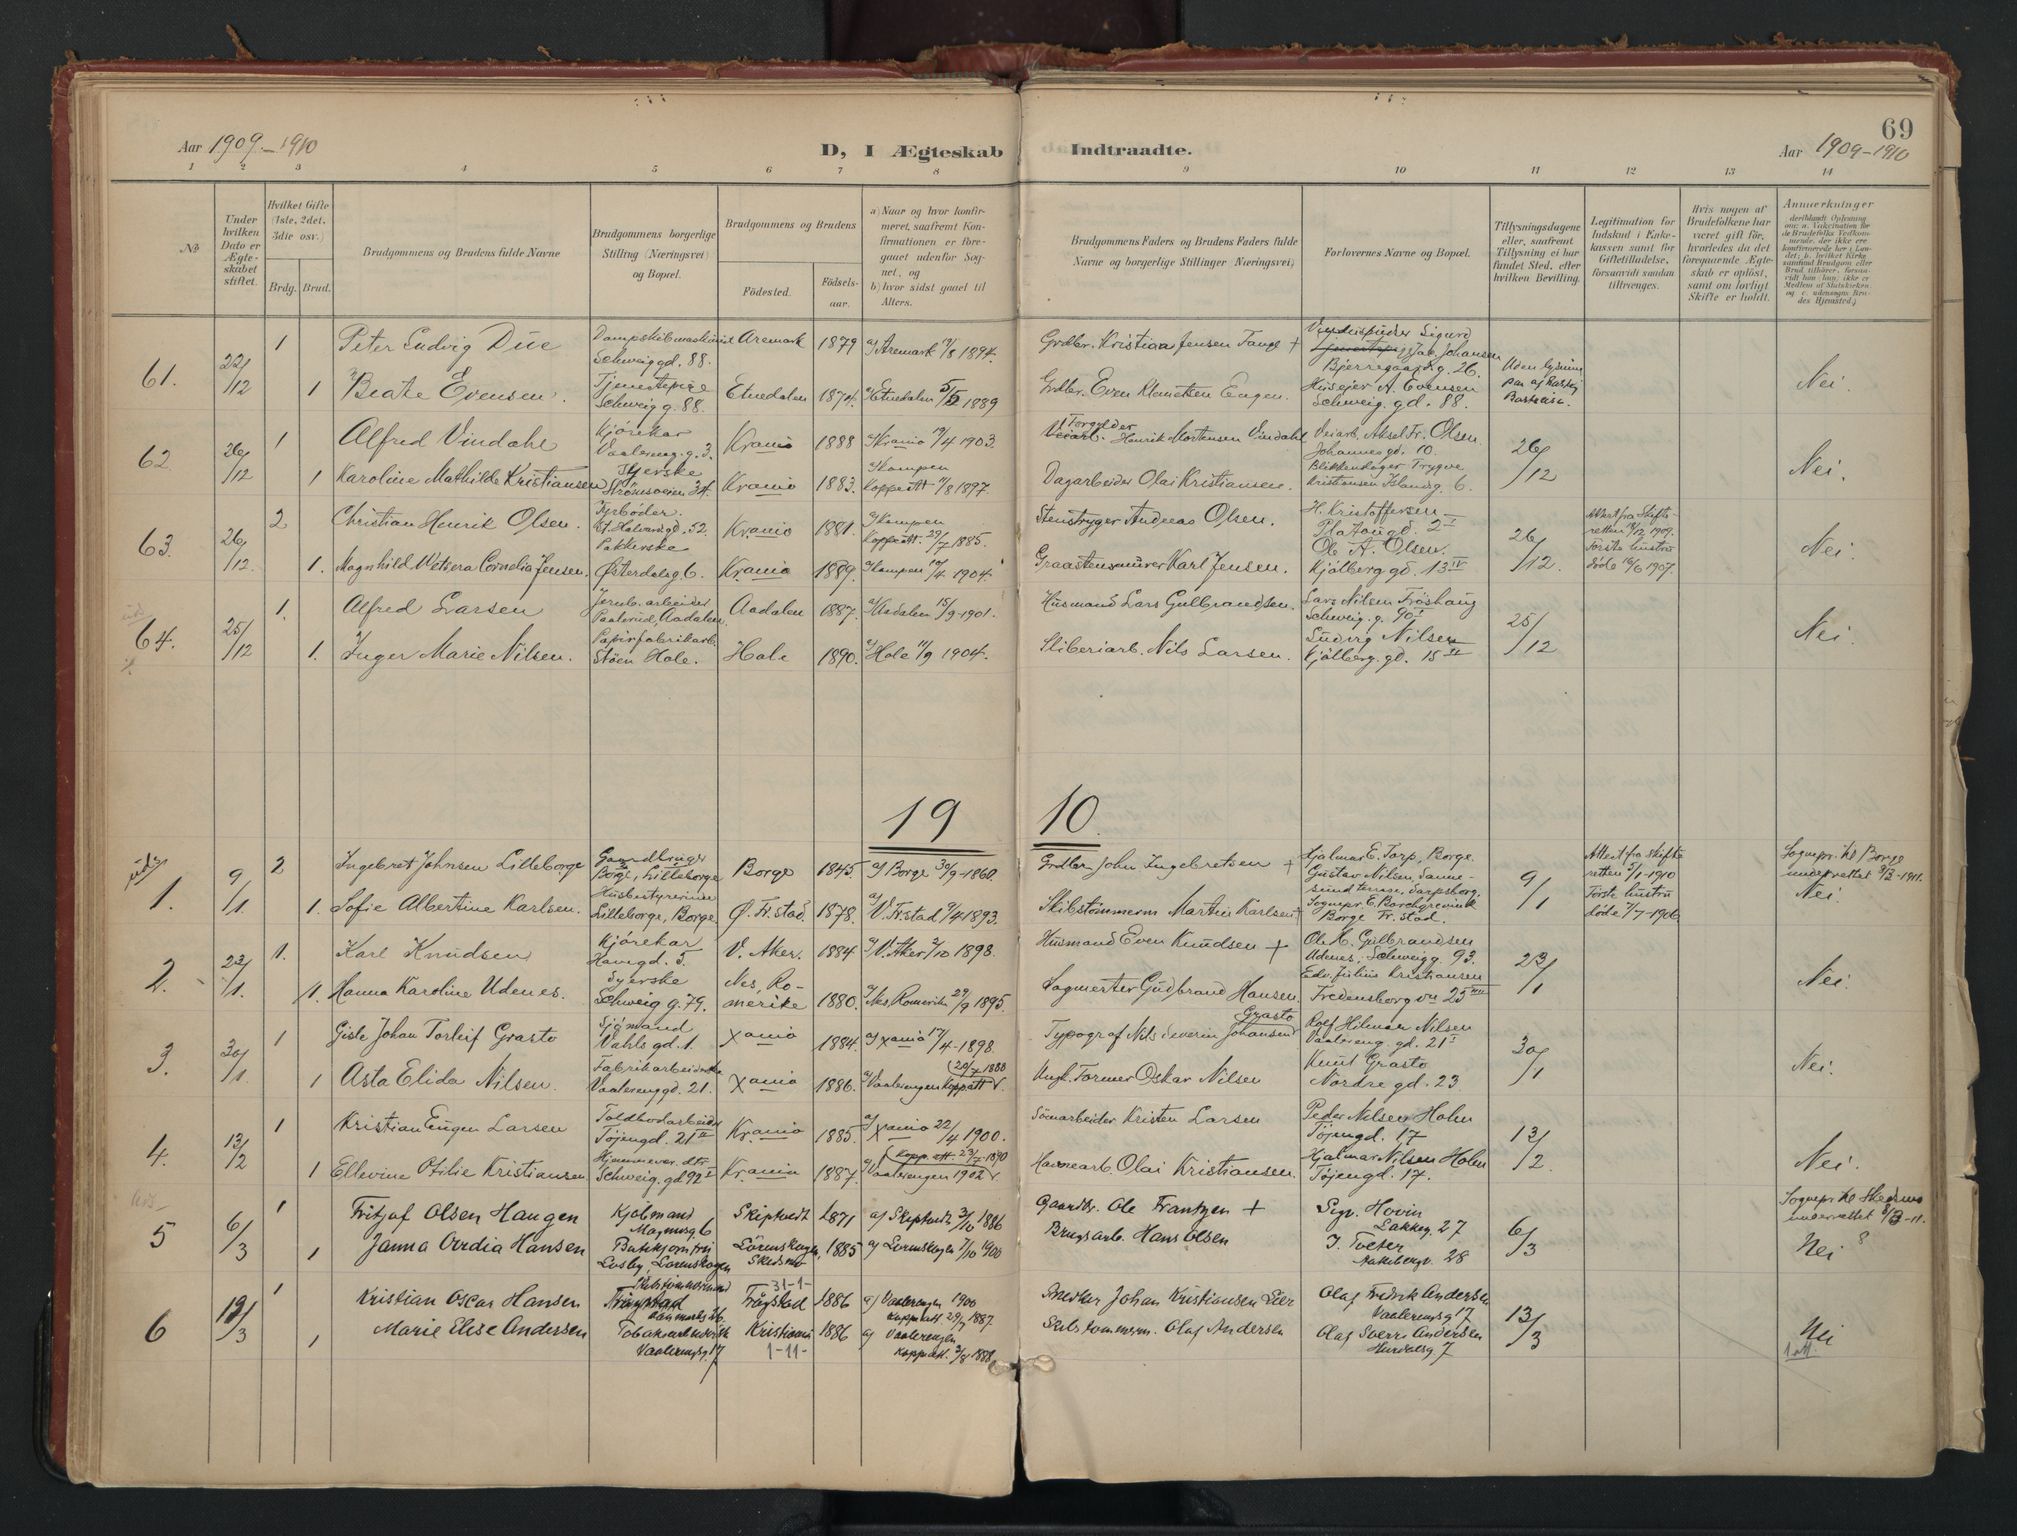 Aar 1909-1910
D, I Ægteskab
Indtraadte.
69
Aar 1909-1910
1 2 3 4 5 6 7 8 9 10 11 12 13 14
No
Under hvilken Dato er Ægteskabet stiftet.
Hvilket Gifte (1ste, 2det, 3die osv.)
Brdg. Brud.
Brudgommens og Brudens fulde Navne
Brudgommens borgerlige Stilling (Næringsvei) og Bopæl.
Brudgommens og Brudens
Fødested.
Fødselsaar.
a) Naar og hvor konfirmeret, saafremt Konfirmationen er foregaaet udenfor Sognet, og
b) hvor sidst gaaet til Alters.
Brudgommens Faders og Brudens Faders fulde Navne og borgerlige Stillinger Næringsvei)
Forlovernes Navne og Bopæl.
Tillysningsdagene eller, saafremt Tillysning ei har fundet Sted, efter hvilken Bevilling.
Legitimation for Indskud i Enkekassen samt for Giftetilladelse, forsaavidt saadan tiltrænges.
Hvis nogen af Brudefolkene har været gift før, hvorledes da det foregaaende Ægteskab er opløst, samt om lovligt Skifte er holdt.
Anmærkninger
61. 22/12
1 Peter Ludvig Due
Schweig gd. 88.
Aremark 1879 a/ Aremark 1894.
Grdbr. Kristian Jensen Tange +
Bjerregaardsg. 26.
1 Beate Evensen.
Tjenestepige
Schweig g. 88.
Etnedalen 1874. a/ Etnedalen 1889
Grdbr. Even Engen.
Huseier A. Evensen
Schweig. gd. 88.
Nei.
62. 26/12
1 Alfred Vindahl
Kjørekar
Vaalereng. g. 3.
Krania 1888 a/ Krania 19/4 1903
Henrik Mortensen Vindahl
Veiarb. Aksel Fr. Olsen.
Johannes gd. 10.
26/12
1 Karoline Mathilde Kristiansen
Syerske
Strømsveien 34.
Krania 1883. a/ Kampen
Koppeatt 1897.
Dagarbeider Olai Kristiansen.
Blikkenslager Trygve
Kristiansen Islandsg. 6.
Nei.
63. 26/12
2 Christian Henrik Olsen.
Fyrbøder.
St. Halvardsgd. 52.
Krania a/ Kampen
Koppatt. 29/7 1885.
Stenstryger Andreas Olsen.
H. Kristoffersen
Platougd. 2 I
26/12.
Attest fra Skifteretten 1909.
Første hustru døde 1907.
1. Magnhild Cornelia Jensen.
Pakkerske
Østerdalsg. 6.
Krania 1889. a/ Kampen 10/4 1904.
Graastensmurer Karl Jensen.
Ole A. Olsen.
Kjølberg gd. 13 IV
Nei.
64. 25/12
1. Alfred Larsen
Jernb. arbeider
Aadalen.
Aadalen 1887. a/ Aadalen 15/9 1901.
Husmand Lars Gulbrandsen.
Lars Nilsen Frøshaug
Schweig. g. 90 I
25/12
1. Inger Marie Nilsen.
Papirfabrikarb.
Støen Hole.
Hole 1890. a/ Hole 11/9 1904.
Sliberiarb. Nils Larsen.
Ludvig Nilsen
Kjølberg. gd. 15 II
Nei.
19 10.
1. 9/1
2 Ingebret Johnsen Lilleborge
Gaardbruger
Borge, Lilleborge
Borge 1845. a/ Borge 30/9-1860.
Grdbr. John Ingebretsen +
Hjalmar E. Torp, Borge.
Gustav Nilsen, Sannesund, Sarpsborg.
9/1
Attest fra Skifteretten 5/1-1910
Første hustru døde 7/7-1906
Sognepr. til Borge underrettet 8/3-1911.
1. Sofie Albertine Karlsen.
Husbestyrerinde
Lilleborge, Borge.
Ø. Fr.stad. 1878. a/ V. Fr.stad 9/4 1893.
Skibstømmerm Martin Karlsen +
Sognepr. E. Borchgrevink
Borge Fr.stad.
Nei.
2. 23/1
1. Karl Knudsen
Kjørekar
Havngd. 5.
V. Aker. 1884 a/ V. Aker 2/10 1898.
Husmand Even Knudsen +
Ole H. Gulbrandsen
Udenes, Schweigg. 93.
23/1
1. Hanna Karoline Udenes.
Syerske
Schweig g. 79.
Nes, Romerike 1880. a/ Nes Romerike 29/9 1895.
Sagmester Gudbrand Hansen.
Edv. Julius Kristiansen
Fredensborg vn 25
Nei.
3. 30/1
1 Gisle Johan Torleif Grasto
Sjømand
Vahls gd. 1.
Xania 1884. a/ Xania 17/4-1898.
Grasto
Typograf Nils Severin Johansen
Rolf Hilmar Nilsen
Vaalereng. gd. 21 I
30/1
1 Asta Elida Nilsen.
Fabrikarbeiderske
Vaalerenggd. 21.
Xania 1886. a/ Vaalerengen Koppatt
Ungk. Former Oskar Nilsen
Knut Grasto
Nordre gd. 23.
Nei.
4. 13/2
1 Kristian Eugen Larsen
Toldbodarbeider
Tøjengd. 21 II
Krania 1885. a/ Xania 22/4 1900.
Kristen Larsen
Peder Nilsen Holm
Tøjengd. 17
13/2
1 Ellevine Otilie Kristiansen
Hjemmevær. dtr.
Schweig. gd 92 I
Krania 1887. a/ Vaalerengen 1902
Kopp. att. 23/7-1890
Havnearb. Olai Kristiansen.
Hjalmar Nilsen Holm
Tøjengd. 17.
Nei.
5 6/3
1 Fritjof Olsen Haugen
Kjølmand
Magnusg. 6
Skiptvedt 1871 a/ Skiptvedt 3/10 1886
Gaardbr. Ole Frantzen +
Sigv. Hovin
Lakkeg. 27
6/3
Sognepr. til Skedsmo underrettet 8/3-11.
1 Janna Ovidia Hansen
Losby, Lørenskogen
Lørenskogen, Skedsmo 1885 a/ Lørenskogen 7/10 1900
Brugsarb. Hans Olsen
J. Tveter
Aakebergv. 28
Nei
6 13/3
1 Kristian Oscar Hansen
Skibstømmermand
Danmarks 26.
31-1-
Trøgstad 1886 a/ Vaalerengen 1900
Koppatt 29/7 1887
Johan Kristiansen Lier
Olaf Fredrik Andersen
Vaalerengsg 17
13/3
1 Marie Elise Andersen
Vaalerengsg. 17
Kristiania 1-11- 1886 a/ Vaalerengen
Koppatt. 3/8 1888
Skibstømmerm. Olaf Andersen
Olaf Sverre Andersen
Hurdalsg. 7
Nei
1 att.